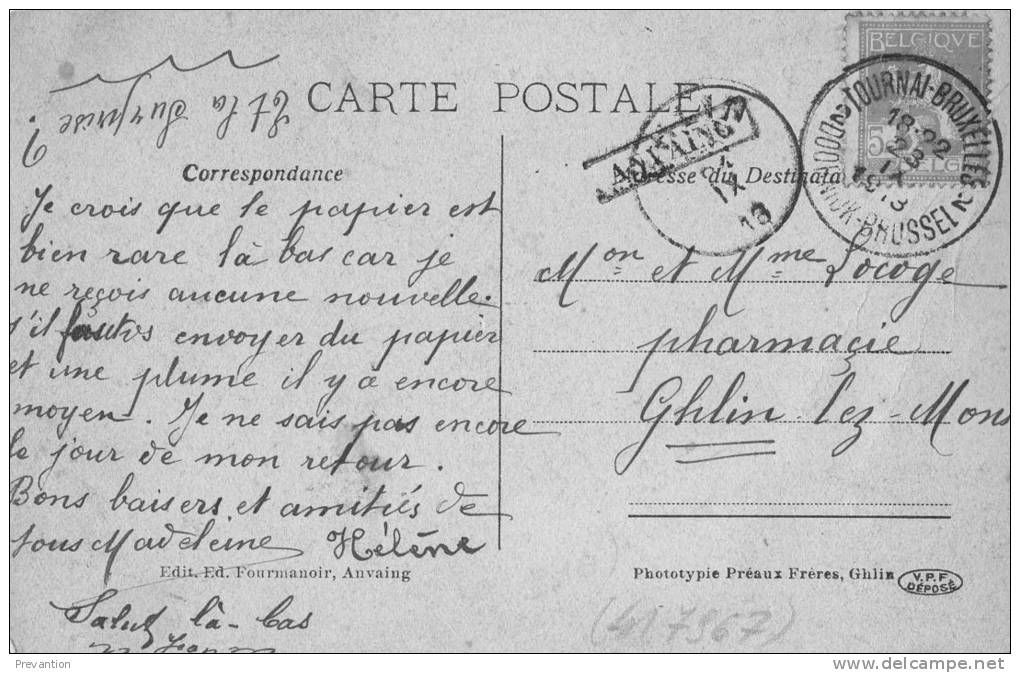 BELGIQUE
CARTE POSTALE
Et la surprise
TOURNAI-BRUXELLES 2
DOORNIJK-BRUSSEL 2
18-22
3
IX
1913
5
ANVAING
4
IX
13
Correspondance
Adresse du Destinata
Je crois que le papier est
bien rare là bas car je
ne reçois aucune nouvelle.
s'il faut vs envoyer du papier
et une plume il y a encore
moyen. Je ne sais pas encore
le jour de mon retour.
Bons baisers et amitiés de
tous Madeleine Hélène
Mon et Mme Locoge
pharmacie
Ghlin lez-Mons
Edit. Ed. Fourmanoir, Anvaing
Phototypie Préaux Frères, Ghlin
V.P.F.
DÉPOSÉ
Salut là-bas
(417967)
Prevantion
delcampe.net